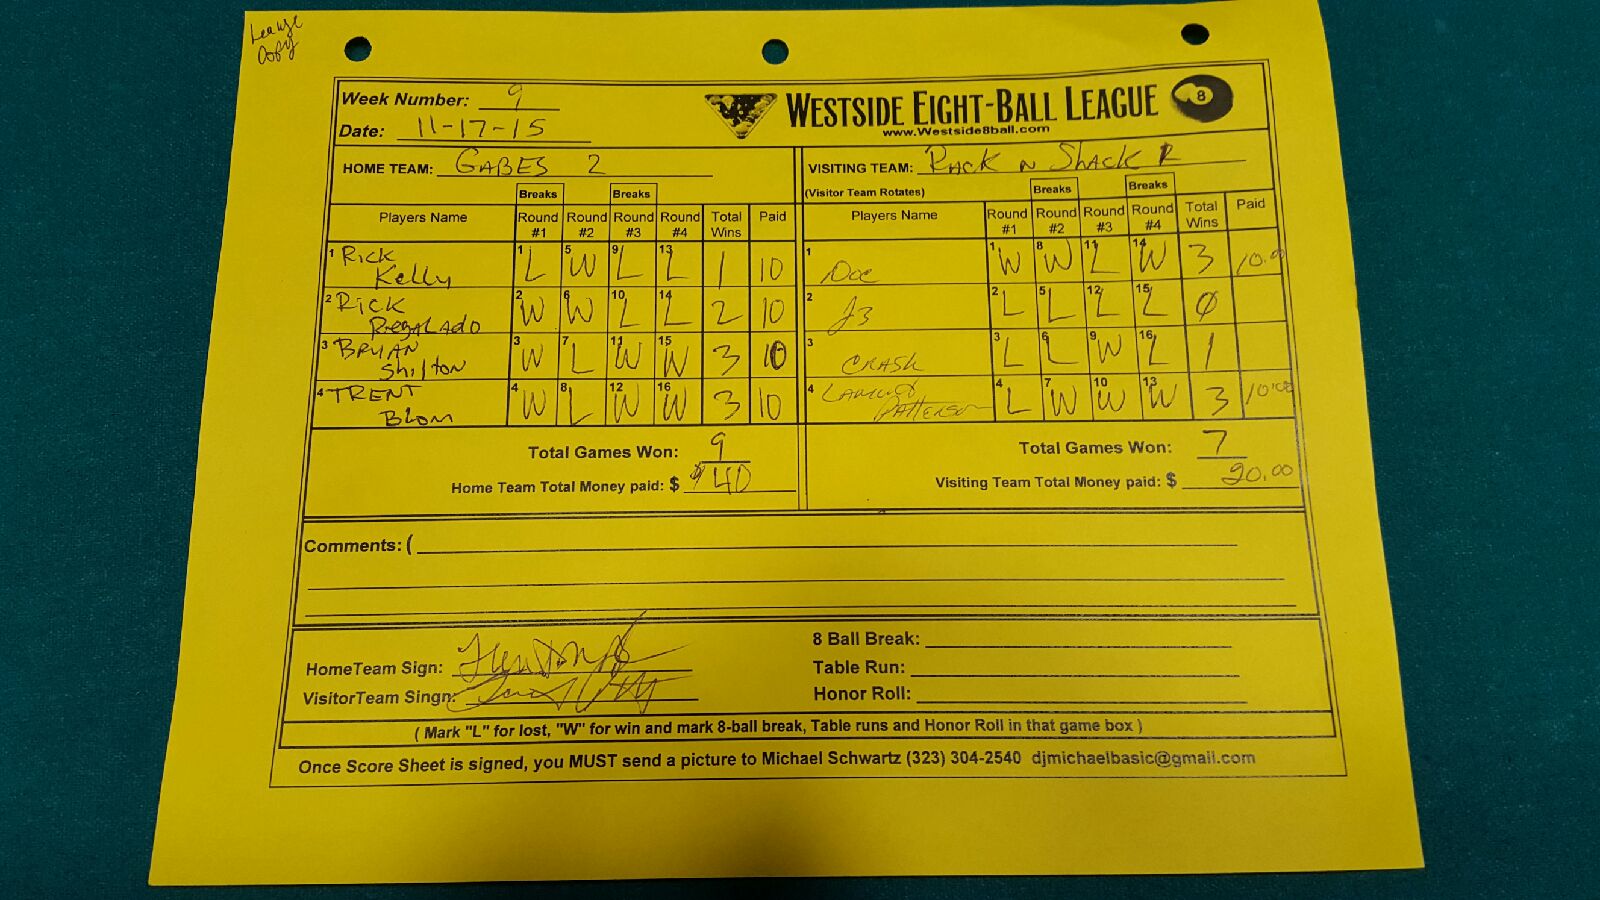 League
Copy
Week Number: 9
Date: 11-17-15
WESTSIDE EIGHT-BALL LEAGUE 8
www.Westside8ball.com
HOME TEAM: GABES 2
VISITING TEAM: RACK N SHACK R
(Visitor Team Rotates)
Breaks Breaks Breaks Breaks
Players Name Round #1 Round #2 Round #3 Round #4 Total Wins Paid Players Name Round #1 Round #2 Round #3 Round #4 Total Wins Paid
1 RICK Kelly 1 L 5 W 9 L 13 L 1 10 1 Doc 1 W 8 W 11 L 14 W 3 10.00
2 RICK RegALAdo 2 W 6 W 10 L 14 L 2 10 2 J3 2 L 5 L 12 L 15 L 0
3 BRYAN Shilton 3 W 7 L 11 W 15 W 3 10 3 CRASH 3 L 6 L 9 W 16 L 1
4 TRENT Blom 4 W 8 L 12 W 16 W 3 10 4 PATTERSON 4 L 7 W 10 W 13 W 3 10.00
Total Games Won: 9 Total Games Won: 7
Home Team Total Money paid: $ $40 Visiting Team Total Money paid: $ 20.00
Comments: (
8 Ball Break:
HomeTeam Sign: Table Run:
VisitorTeam Singn: Honor Roll:
( Mark "L" for lost, "W" for win and mark 8-ball break, Table runs and Honor Roll in that game box )
Once Score Sheet is signed, you MUST send a picture to Michael Schwartz (323) 304-2540 djmichaelbasic@gmail.com